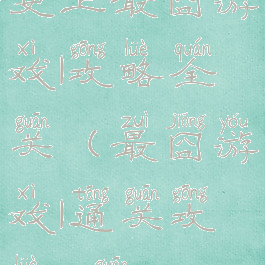 史上最囧游
xì gōng lüè quán
戏1攻略全
guān zuì jiǒng yóu
关(最囧游
xì tōng guān gōng
戏1通关攻
lüè